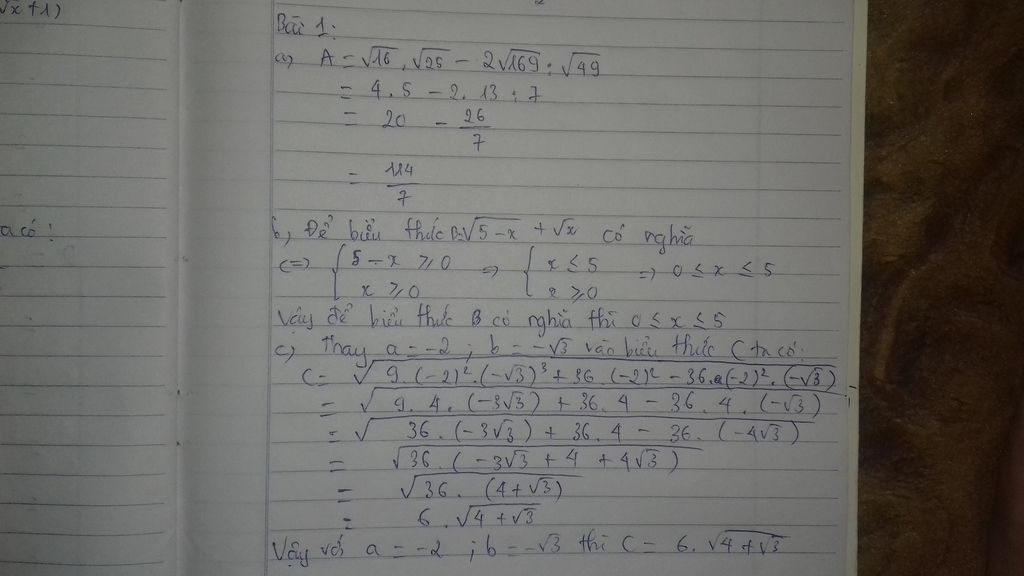 √x + 1)
a có:
Bài 1:
a) A = √16 . √25 − 2√169 : √49
= 4 . 5 − 2 . 13 : 7
= 20 − 26/7
= 114/7
b, Để biểu thức B=√5−x + √x có nghĩa
<=> { 5 − x ≥ 0 => { x ≤ 5 => 0 ≤ x ≤ 5
x ≥ 0 x ≥ 0
Vậy để biểu thức B có nghĩa thì 0 ≤ x ≤ 5
c) Thay a = −2 ; b = −√3 vào biểu thức C ta có:
C = √9.(−2)².(−√3)³ + 36.(−2)² − 36.(−2)².(−√3)
= √9 . 4 . (−3√3) + 36 . 4 − 36 . 4 . (−√3)
= √36 . (−3√3) + 36 . 4 − 36 . (−4√3)
= √36 . (−3√3 + 4 + 4√3)
= √36 . (4+√3)
= 6 . √4 + √3
Vậy với a = −2 ; b = −√3 thì C = 6. √4 + √3